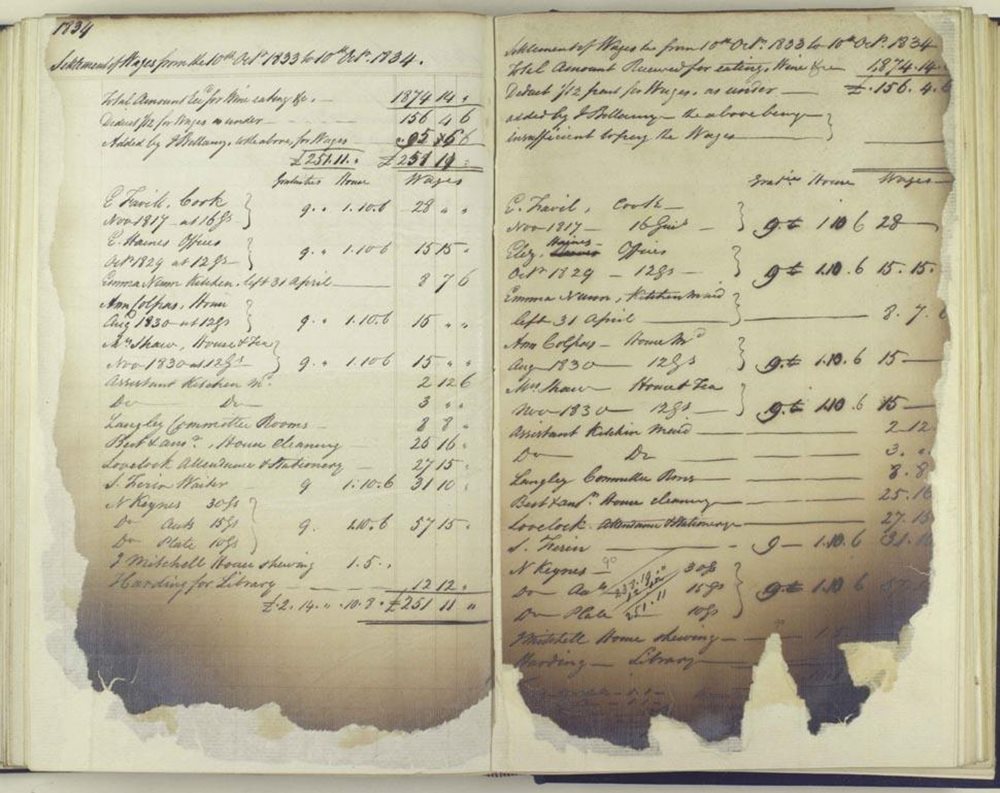 1834
Settlement of Wages from the 10th Octr 1833 to 10th Octr 1834.
Total Amount for Wine eating &c. 1874 14 "
Deduct 1/12 for Wages as under 156 4 6
Added by J Bellamy, to the above, for Wages 95 6 6
£251.11. " £251 11 "
Gratuities House Wages
E. Favill, Cook
Nov 1817 at 16Gs } 9. " 1.10.6 28 " "
E. Haines Offices
Octr 1829 at 12Gs } 9. " 1.10.6 15 15 "
Emma Nunn Kitchen, left 31 April 8 7 6
Ann Colpas, House
Augt 1830 at 12Gs } 9. " 1.10.6 15 " "
Mrs Shaw, House & Tea
Nov 1830 at 12Gs } 9. " 1.10.6 15 " "
Assistant Kitchen Md. 2 12 6
Do Do 3 " "
Langley Committee Rooms 8 8 "
Best & House Cleaning 25 16 "
Lovelock Attendance & Stationery 27 15 "
S. Waiter 9 1.10.6 31 10 "
N Keynes 30Gs
Do 15Gs } 9. 1.10.6 57 15 "
Do Plate 10Gs
J Mitchell House shewing 1.5. "
Harding for Library 12 12 "
£251 11 "
Settlement of Wages &c from 10th Octr. 1833 to 10th Octr. 1834
Total Amount Received for eating, Wine &c 1874.14.
Deduct 1/12 part for Wages, as under £.156.4.6
added by J Bellamy the above being
insufficient to pay the Wages }
House Wages
E. Favil, Cook
Nov 1817 16 } 9 1 10 6 28
Eliz. Haines Offices
Octr 1829 12Gs } 9 1.10.6 15.15.
Emma Nunn, Kitchen Maid
left 31 April } 8.7.
Ann Colpas House Md
Aug 1830 12Gs } 9 1.10.6 15
Mrs Shaw House & Tea
Nov 1830 12Gs } 9 1.10.6 15
Assistant Kitchen Maid 2 12
Do Do 3.
Langley Committee Rms 8.8
Best & House cleaning 25.16
Lovelock Attendance & Stationery 27.15
S. 9 1.10.6 31.
N Keynes 30Gs
Do 15Gs } 9 1.10.6
Do Plate 10Gs
251.11
J Mitchell House shewing
Harding Library